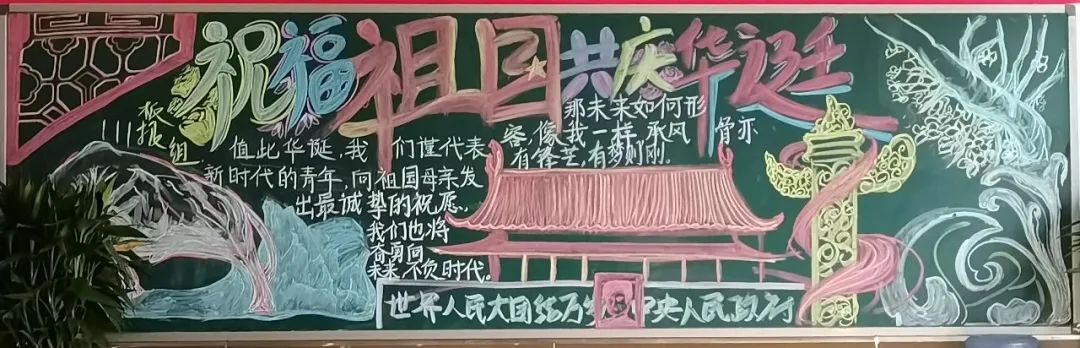 祝福祖国 共庆华诞
板报组
值此华诞,我们谨代表
新时代的青年,向祖国母亲发
出最诚挚的祝愿,
我们也将
奋勇向
未来,不负时代。
那未来如何形
容,像我一样 承风骨亦
有锋芒,有梦则刚.
世界人民大团结万岁 中央人民政府